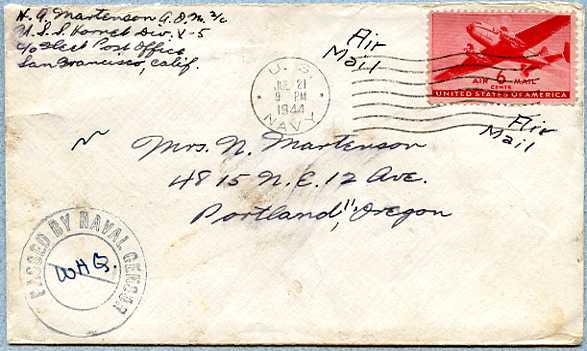 N. A. Martenson A.O.M. 3/c
U.S.S. Hornet Div. V-5
c/o Fleet Post Office
San Francisco, Calif.
Air
Mail
U. S.
JUL 21
9 PM
1944
NAVY
AIR 6 MAIL
CENTS
UNITED STATES OF AMERICA
Air
Mail
Mrs. N. Martenson
4815 N.E. 12 Ave.
Portland 11, Oregon
PASSED BY NAVAL CENSOR